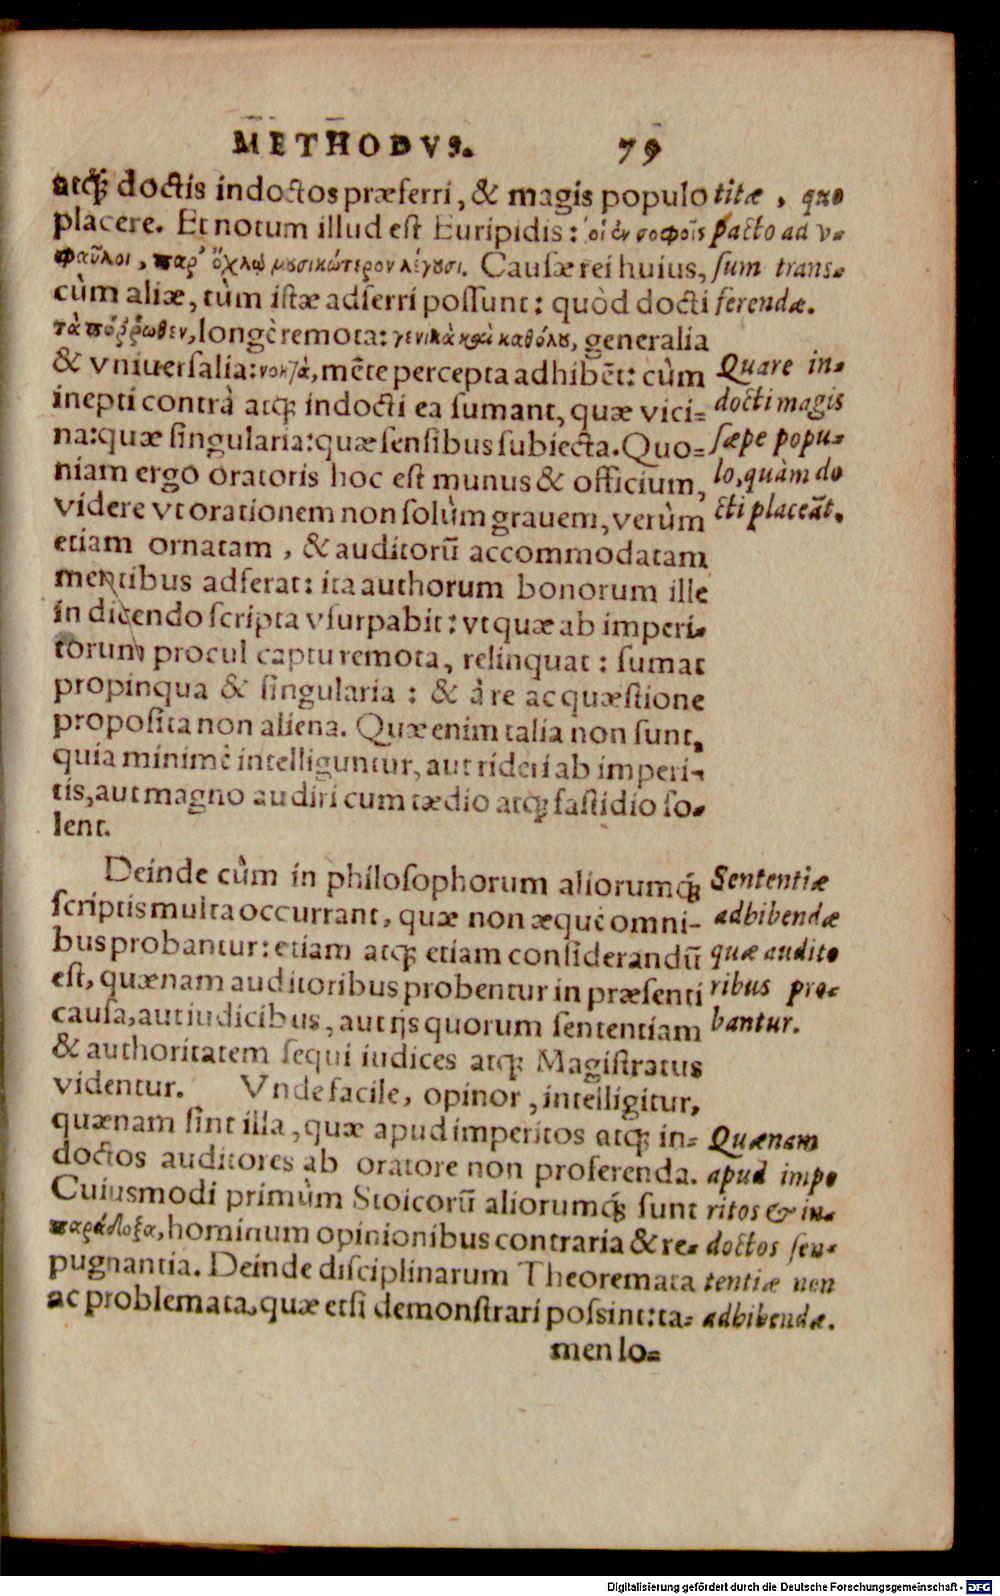 METHODVS. 79
atq́; doctis indoctos præferri, & magis populo
placere. Et notum illud est Euripidis: οἱ ἐν σοφοῖς
φαῦλοι, παρ' ὄχλῳ μουσικώτερον λέγουσι. Causæ rei huius,
cùm aliæ, tùm istæ adferri possunt: quòd docti
τὰ πόῤῥωθεν, longè remota: γενικὰ καὶ καθόλου, generalia
& vniuersalia: νοητὰ, mēte percepta adhibēt: cùm
inepti contrà atq; indocti ea sumant, quæ vici-
na: quæ singularia: quæ sensibus subiecta. Quo-
niam ergo oratoris hoc est munus & officium,
videre vt orationem non solùm grauem, verùm
etiam ornatam, & auditorū accommodatam
mentibus adferat: ita authorum bonorum ille
in dicendo scripta vsurpabit: vt quæ ab imperi-
torum procul captu remota, relinquat: sumat
propinqua & singularia: & à re ac quæstione
proposita non aliena. Quæ enim talia non sunt,
quia minimè intelliguntur, aut rideri ab imperi-
tis, aut magno audiri cum tædio atq; fastidio so-
lent.
Deinde cùm in philosophorum aliorumq́;
scriptis multa occurrant, quæ non æquè omni-
bus probantur: etiam atq; etiam considerandū
est, quænam auditoribus probentur in præsenti
causa, aut iudicibus, aut ijs quorum sententiam
& authoritatem sequi iudices atq; Magistratus
videntur. Vnde facile, opinor, intelligitur,
quænam sint illa, quæ apud imperitos atq; in-
doctos auditores ab oratore non proferenda.
Cuiusmodi primùm Stoicorū aliorumq́; sunt
παράδοξα, hominum opinionibus contraria & re-
pugnantia. Deinde disciplinarum Theoremata
ac problemata, quæ etsi demonstrari possint: ta-
men lo-
titæ, quo
pacto ad v-
sum trans-
ferendæ.
Quare in-
docti magis
sæpe popu-
lo, quàm do
cti placeāt.
Sententiæ
adhibendæ
quæ audito
ribus pro-
bantur.
Quænam
apud impe
ritos & in-
doctos sen-
tentiæ non
adhibendæ.
Digitalisierung gefördert durch die Deutsche Forschungsgemeinschaft - DFG